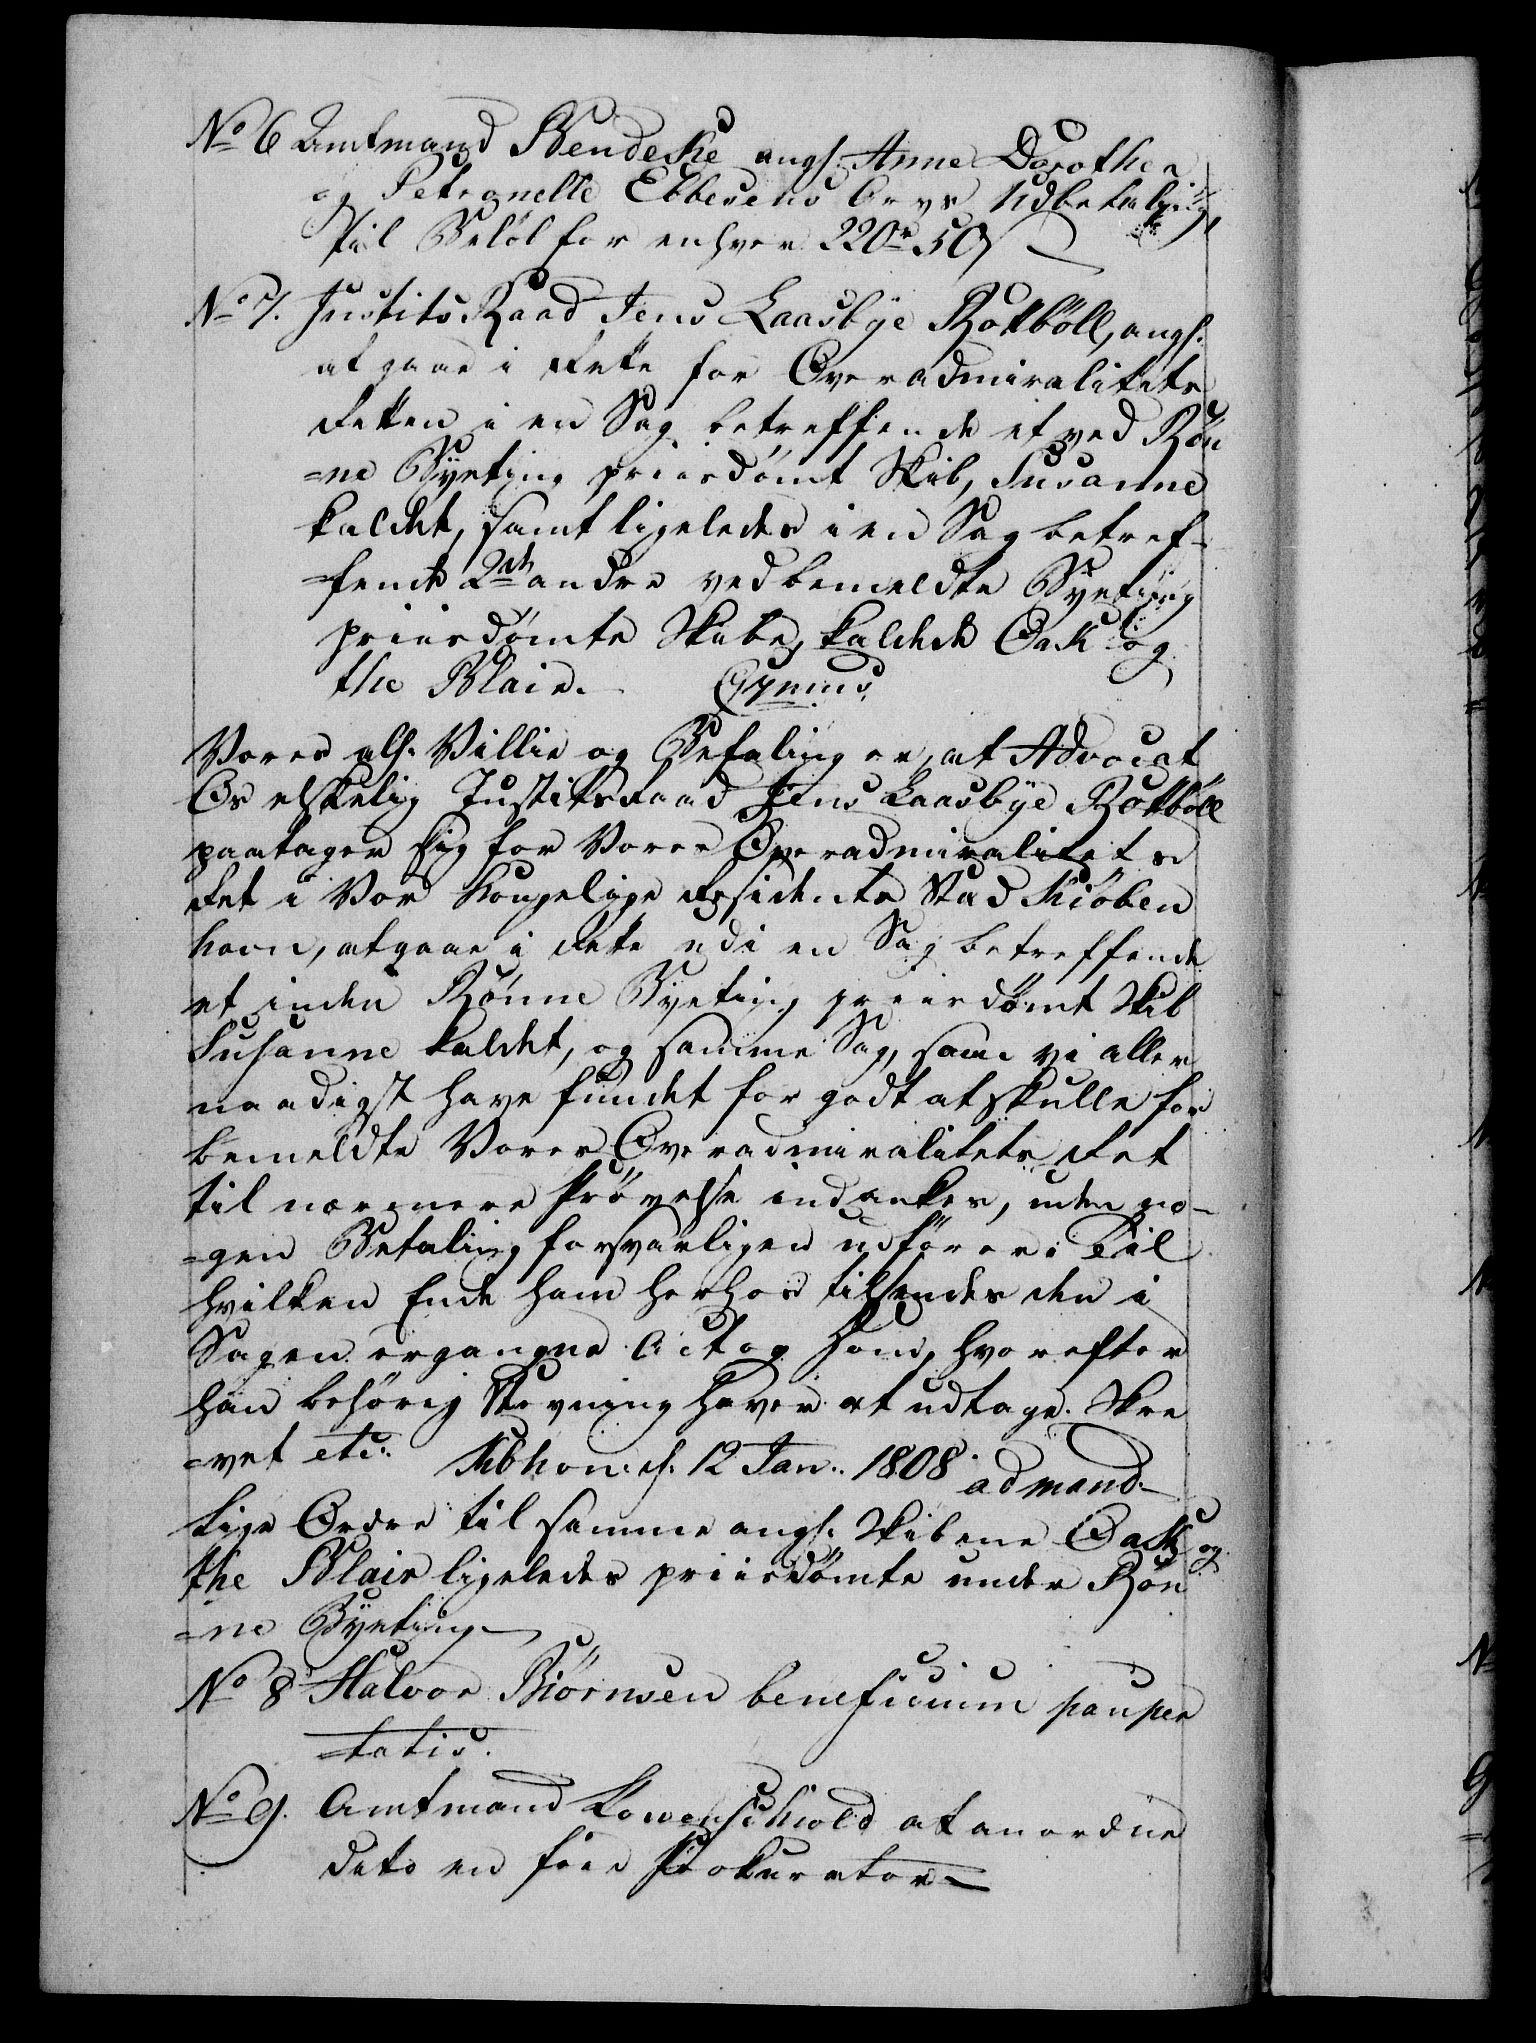 No 6 Amtmand Bendeke angl. Anne Dorothea
og Petronelle Ebbesens Arvs Udbetaling,
til Beløb for enhver 220 r 50 s
No 7. Justits Raad Jens Laasbye Rottbøll, angl.
at gaae i Rette for Overadmiralitets
Retten i en Sag betreffende et ved Røn
=ne Byeting priisdømt Skib, Susanne
kaldet, samt ligeledes i en Sag betref-
=fende 2de andre ved bemeldte Byeting
priisdømte Skibe, kaldede Oak og
the Blair.
Vores all. Villie og Befaling er, at Advocat
Os elskelig Justitsraad Jens Laasbye Rottbøll
paatager sig for Vores Overadmiralitets
Ret i Vor Kongelige Residents Stad Kiøben
havn, at gaae i Rette udi en Sag betreffende
et inden Rønne Byeting priisdømt Skib
Susanne kaldet, og samme Sag, som vi aller
naadigst have fundet for godt at skulle for
bemeldte Vores Overadmiralitets Ret
til nærmere Prøvelse indankes, uden no-
=gen Betaling forsvarligen udfører. Til
hvilken Ende ham herhos tilsendes den i
Sagen ergangne Act og Dom, hvorefter
han behørig Stevning haver at udtage. Skre
=vet etc: Kbhavn d. 12 Jan: 1808 ad mand.
Lige Ordre til samme angl. Skibene Oak og
the Blair ligeledes priisdømte under Røn
=ne Byeting
No 8 Halvor Biørnsen beneficium pauper
=tatis.
No 9. Amtmand Løwenschiold at anordne
dito en frie Prokurator